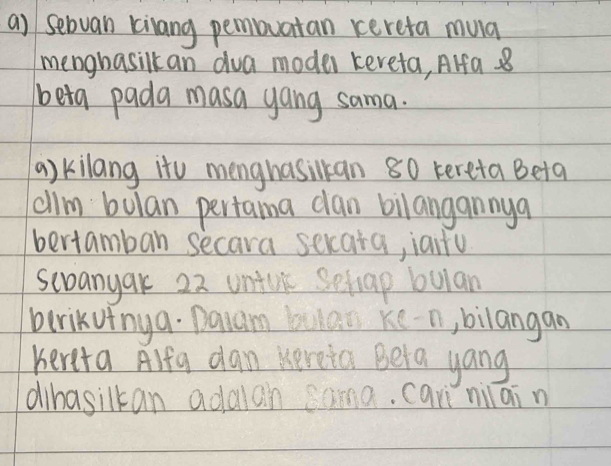 a) Sebuah kilang pembuatan kereta mula
menghasilkan dua model kereta, Alfa &
beta pada masa yang sama.
a) Kilang itu menghasilkan 80 kereta Beta
dlm bulan pertama dan bilangannya
bertambah secara sekata, iaitu
sebanyak 22 untuk setiap bulan
berikutnya. Dalam bulan ke-n, bilangan
kereta Alfa dan kereta Beta yang
dihasilkan adalah sama. Cari nilai n